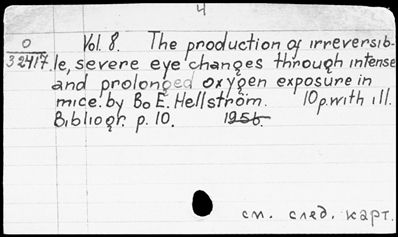 4
О Vol. 8. The production of irreversib-
32417. le, severe eye changes through intense
and prolonged oxygen exposure in
mice. by Bo E. Hellström. 10 p. with ill.
Bibliogr. p. 10. 1956.
см. след. карт.